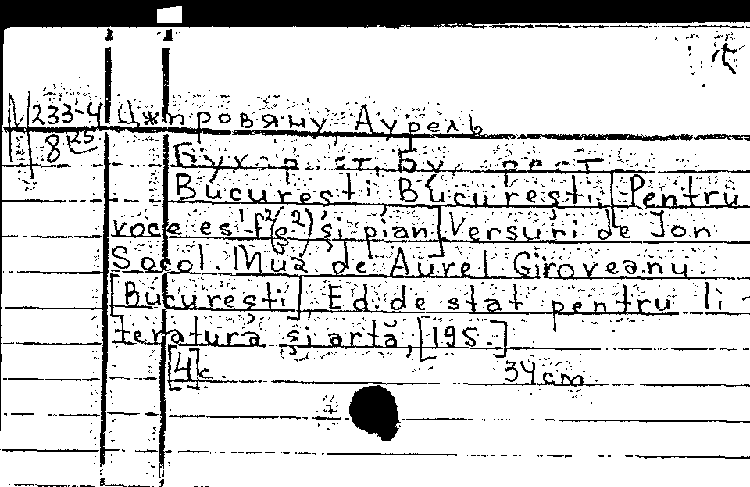 М 233-4 Джировяну, Аурель
8
București, București. [Pentru
voce es¹-f(g²) și pian] Versuri de Ion
Socol. Muz de Aurel Giroveanu.
[București] Ed. de stat pentru li-
teratură și artă, [195.]
[4] c. 34 cm